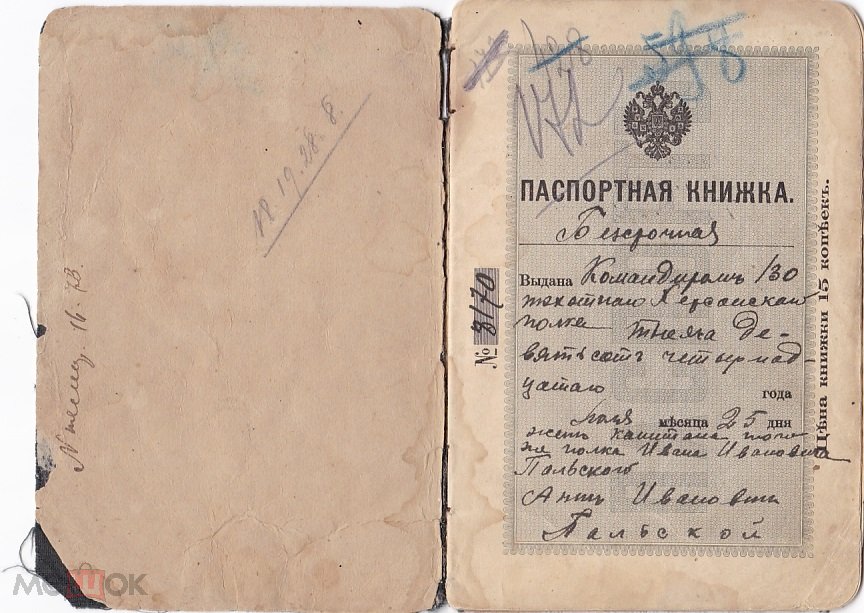 18.19.28.8.
16.73.
128
172
ПАСПОРТНАЯ КНИЖКА.
Безсрочная
№ 8170
Выдана Командиромъ 130
пехотнаго Херсонскаго
полка Тысяча де-
вятьсотъ четырнад-
цатаго года
Іюля мѣсяца 25 дня
женѣ капитана того
же полка Ивана Ивановича
Пальскаго
Аннѣ Ивановнѣ
Пальской
Цѣна книжки 15 копѣекъ.
МЕШОК